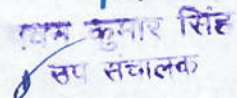 कुमार सिंह
उप संचालक